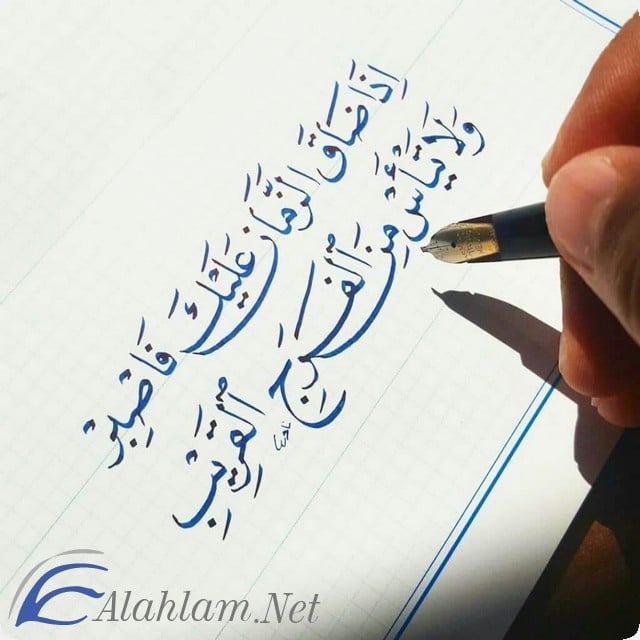 إِذَا ضَاقَ الزَّمَانُ عَلَيْكَ فَاصْبِرْ
وَلَا تَيْأَسْ مِنَ الْفَرَجِ الْقَرِيْبِ
Alahlam.Net